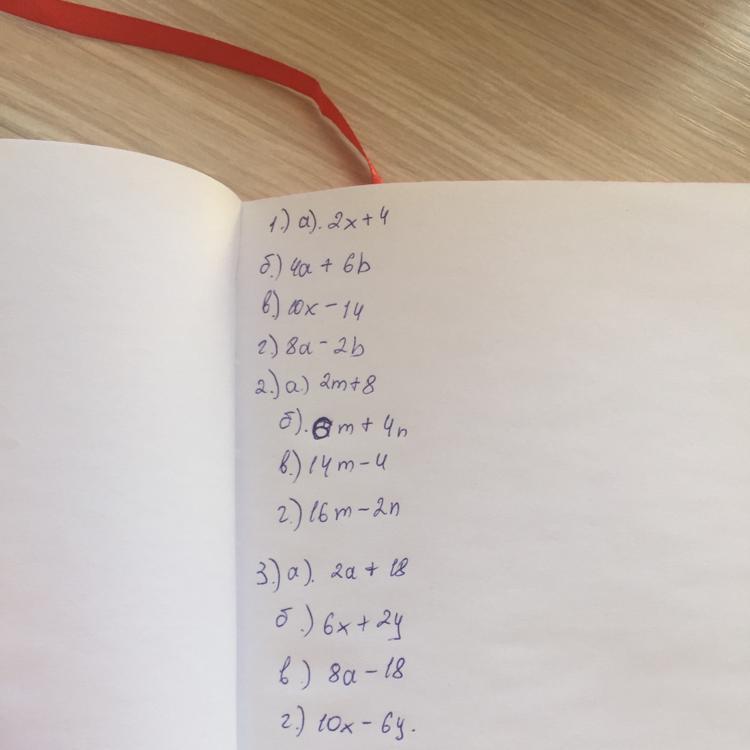 1.) а). 2x+4
б.) 4a + 6b
в.) 10x - 14
г.) 8a - 2b
2.) а.) 2m+8
б). 6m + 4n
в.) 14m - 4
г.) 16m - 2n
3.) а). 2a + 18
б.) 6x + 2y
в.) 8a - 18
г.) 10x - 6y.